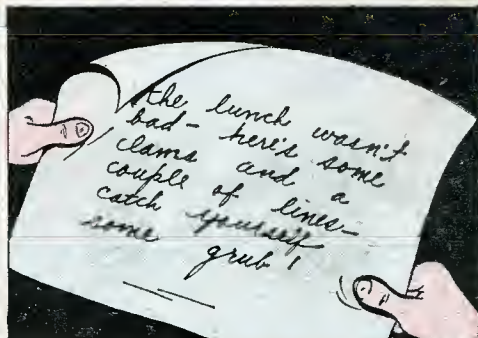 the lunch wasn't
bad - here's some
clams and a
couple of lines -
catch yourself
some grub!